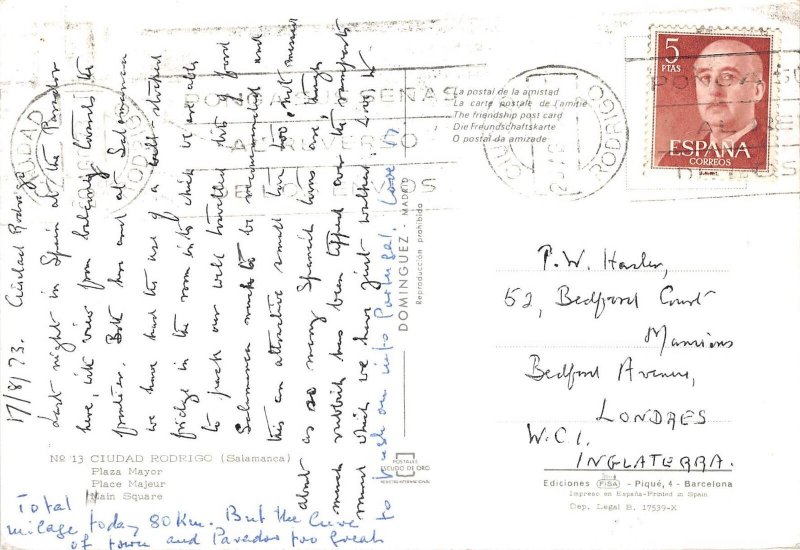 17/8/73. Ciudad Rodrigo
Last night in Spain at the Parador
here, with view from balcony towards the
frontier. Both here and at Salamanca
we have had the use of a well-stocked
fridge in the room into which we are able
to pack our well travelled bits of food
Salamanca much to be recommended and
this an attractive small town too, but messed
about as so many Spanish towns are, though
much rubbish has been tipped over the ramparts
round which we have just walked.
to push on into Portugal. Love
Total
milage today 80 Km. But the lure
of town and Parador too great
Nº 13 CIUDAD RODRIGO (Salamanca)
Plaza Mayor
Place Majeur
Main Square
POSTALES
ESCUDO DE ORO
REGISTRO INTERNACIONAL
DOMINGUEZ - MADRID
Reproducción prohibida
La postal de la amistad
La carte postale de l'amitié
The friendship post card
Die Freundschaftskarte
O postal da amizade
CIUDAD RODRIGO
CIUDAD RODRIGO
5
PTAS
ESPAÑA
CORREOS
P.W. Hasler,
52, Bedford Court
Mansions
Bedford Avenue,
LONDRES
W.C.1.
INGLATERRA.
Ediciones FISA - Piqué, 4 - Barcelona
Impreso en España-Printed in Spain
Dep. Legal B. 17539-X